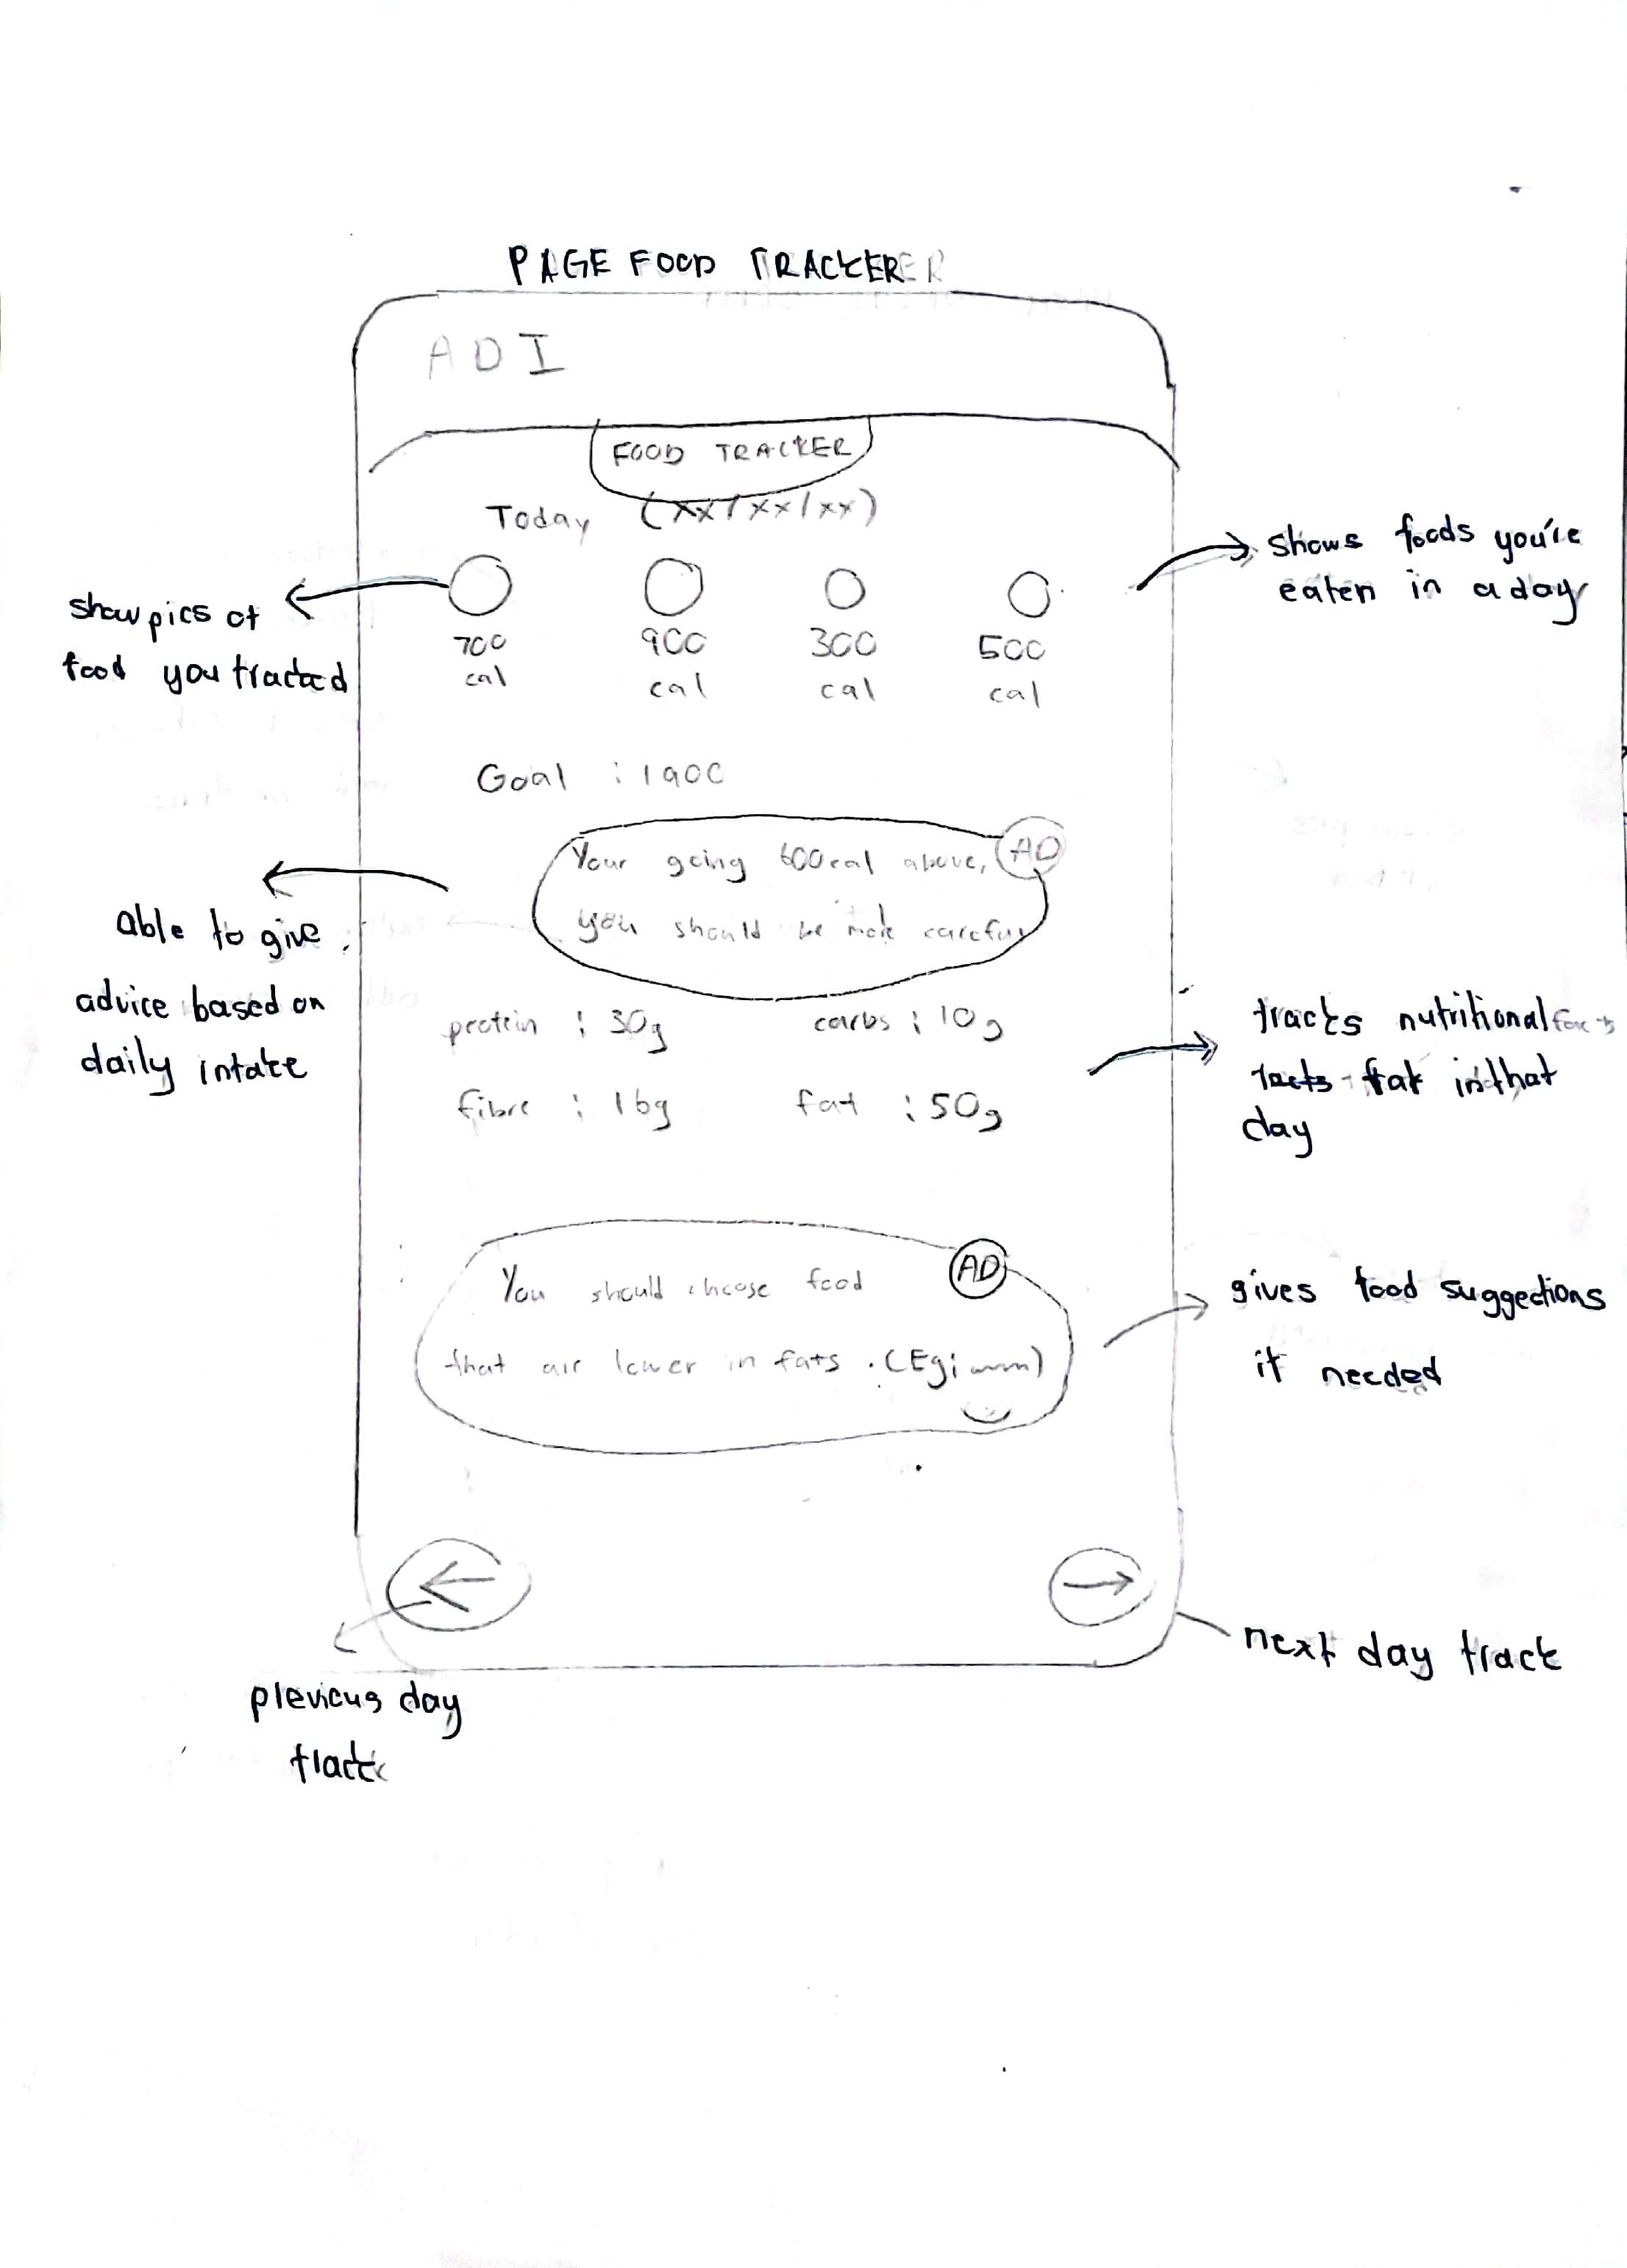 PAGE FOOD TRACKERER
ADI
FOOD TRACKER
Today (xx/xx/xx)
shows foods you're
eaten in a day
show pics of
food you tracked
700 900 300 500
cal cal cal cal
Goal : 1900
Your going 600cal above, AD
you should be more careful
able to give
advice based on
daily intake
protein : 30g carbs : 10g
fibre : 16g fat : 50g
tracks nutritional facts
facts fat in that
day
You should choose food AD
that are lower in fats . (Eg:
gives food suggections
if needed
next day track
previous day
track